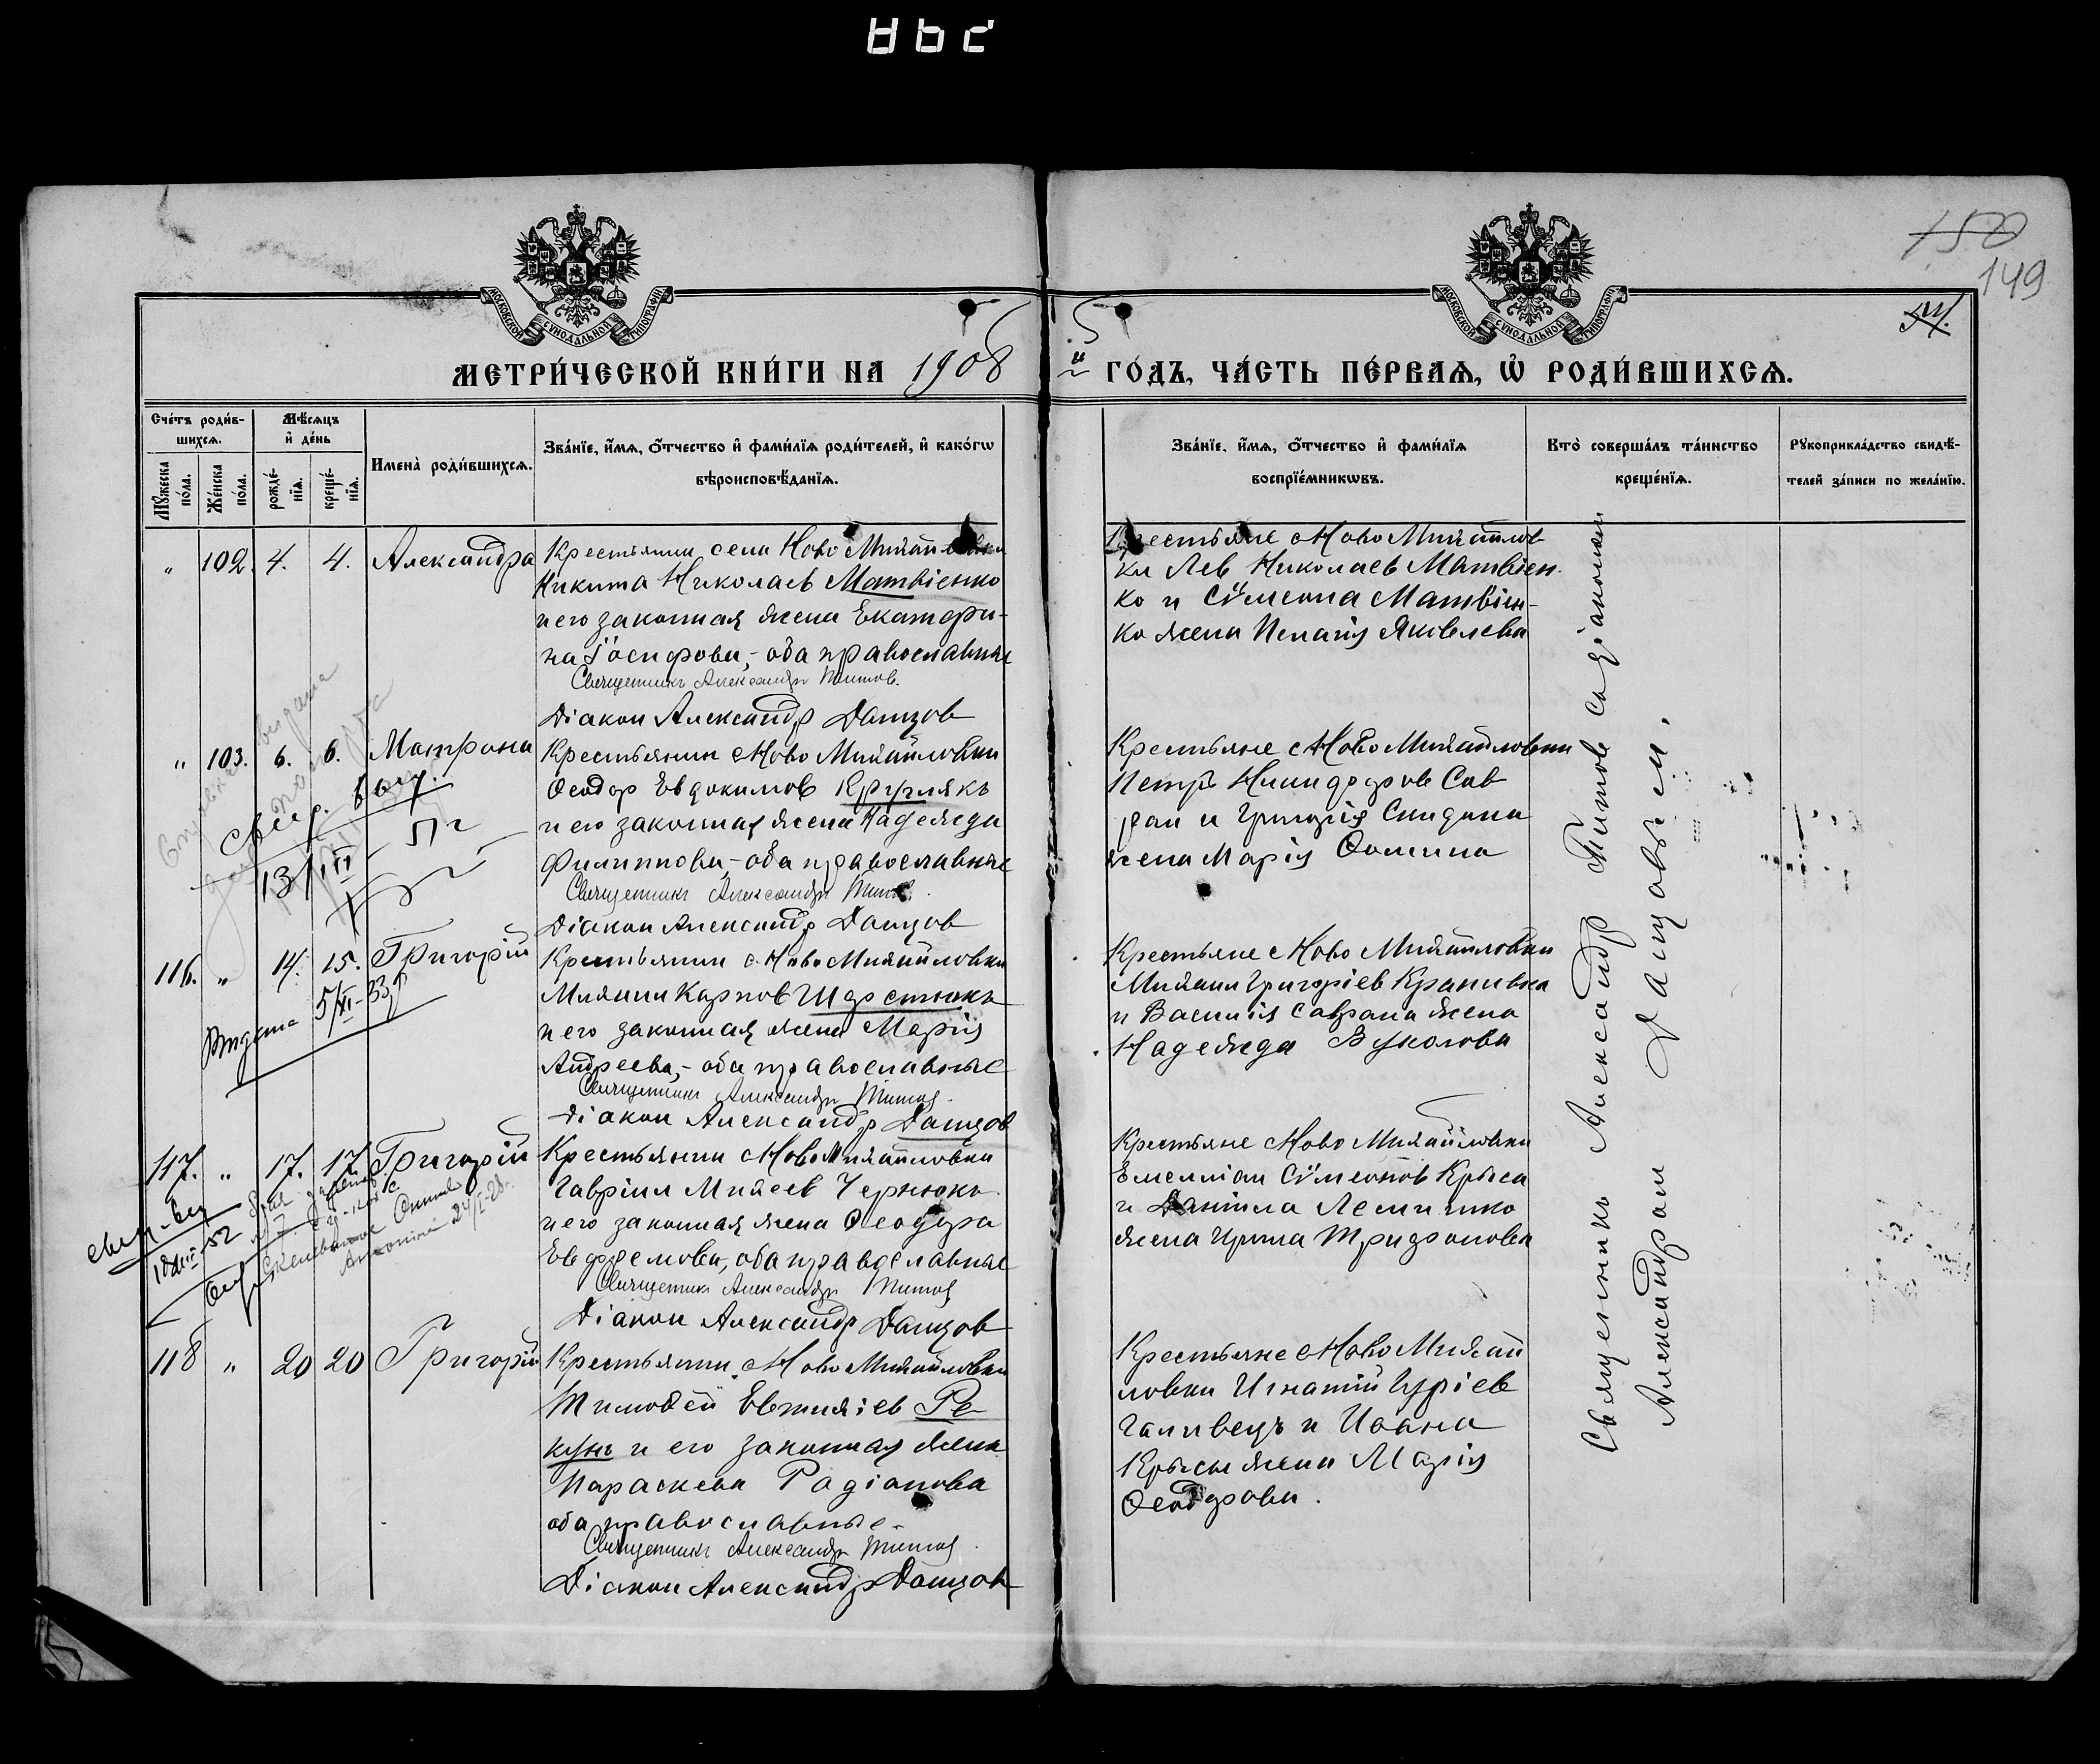 МОСКОВСКОЙ СУНОДАЛЬНОЙ ТИПОГРАФІИ
МОСКОВСКОЙ СУНОДАЛЬНОЙ ТИПОГРАФІИ
150
149
МЕТРИ́ЧЕСКОЙ КНИ́ГИ НА 1908 й ГО́ДЪ, ЧА́СТЬ ПЕ́РВАѦ, Ѡ҆ РОДИ́ВШИХСѦ.
Сче́тъ роди́в-
шихсѧ.
Мꙋ́жеска по́ла.
Же́нска по́ла.
Мѣ́сѧцъ
и҆ де́нь
рожде́-
нїѧ.
креще́-
нїѧ.
Имена̀ роди́вшихсѧ.
Зва́нїе, и҆́мѧ, ѻ҆́тчество и҆ фами́лїѧ роди́телей, и҆ како́гѡ
вѣроисповѣ́данїѧ.
Зва́нїе, и҆́мѧ, ѻ҆́тчество и҆ фами́лїѧ
воспрїе́мникѡвъ.
Кто̀ соверша́лъ та́инство
креще́нїѧ.
Рꙋкоприкла́дство свидѣ́-
телей за́писи по жела́нїю.
" 102. 4. 4. Александра
Крестьянин села Ново Михайловки
Никита Николаев Матвіенко
и его законная жена Екатери-
на Іосифова,- оба православные
Священникъ Александръ Титов.
Діакон Александр Данцов
Крестьяне с Ново Михайлов
ки Лев Николаев Матвіен
ко и Сѵмеона Матвіен-
ко жена Пелагія Яковлева
" 103. 6. 6. Матрона
Крестьянин с Ново Михайловки
Ѳеодор Евдокимов Кругляк
и его законная жена Надежда
Филиппова,- оба православные
Священникъ Александръ Титов.
Діакон Александр Данцов
Крестьяне с Ново Михайловки
Петр Никифоров Сав
ран и Григорія Скидана
жена Марія Ѳомина
116. " 14. 15. Григорій
5/XI-33
Крестьянин с Ново Михайловки
Михаил Карпов Шерстюк
и его законная жена Марія
Андреева,- оба православные
Священникъ Александръ Титов
Діакон Александр Данцов
Крестьяне с Ново Михайловки
Михаил Григоріев Крапивка
и Василія Саврана жена
Надежда Вуколова
117. " 17. 17. Григорій
Крестьянин с Ново Михайловки
Гавріил Мих Чернюк
и его законная жена Ѳеодора
Евфремова, оба православные
Священникъ Александръ Титов
Діакон Александр Данцов
Крестьяне с Ново Михайловки
Емеліан Сѵмеонов Крыса
и Даніила Лемишко
жена Ирина Трифонова
118 " 20 20 Григорій
Крестьянин с Ново Михайловки
Тимоѳей Евтихіев Ре-
кун и его законная жена
Параскева Радіонова
оба православные.
Священникъ Александръ Титов
Діакон Александр Данцов
Крестьяне с Ново Михай
ловки Игнатій Гуріев
Галивец и Ивана
Крысы жена Марія
Ѳеодорова.
Священник Александр Титов с діаконом
Александром Данцовым.